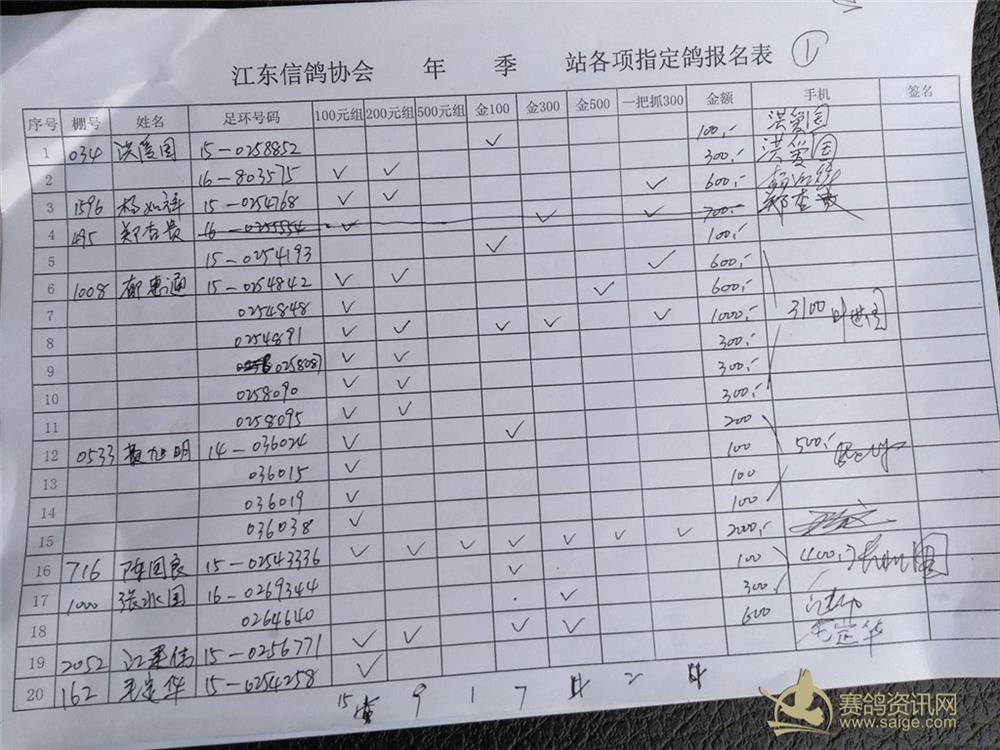 ①
江东信鸽协会 年 季 站各项指定鸽报名表
序号 棚号 姓名 足环号码 100元组 200元组 500元组 金100 金300 金500 一把抓300 金额 手机 签名
1 034 洪爱国 15-0258852 ✓ 100,- 洪爱国
2 16-803575 ✓ ✓ 300,- 洪爱国
3 1596 杨如祥 15-0254768 ✓ ✓ ✓ 600,-
4 495 郑杏贵 16-0255554 ✓ ✓ ✓ 700,- 郑杏贵
5 15-0254193 ✓ 100,-
6 1008 郁惠通 15-0254842 ✓ ✓ ✓ 600,-
7 0254848 ✓ ✓ 600,- 3100
8 0254891 ✓ ✓ ✓ ✓ ✓ 1000,-
9 0258081 ✓ ✓ 300,-
10 0258090 ✓ ✓ 300,-
11 0258095 ✓ ✓ 300,-
12 0533 黄旭明 14-036024 ✓ ✓ 200 500,-
13 036015 ✓ 100
14 036019 ✓ 100
15 036038 ✓ 100
16 716 陈国良 15-02543336 ✓ ✓ ✓ ✓ ✓ ✓ ✓ 2000,-
17 1000 张水国 16-0269344 ✓ 100 1100,-
18 0264640 ✓ 300,-
19 2052 江 伟 15-0256771 ✓ ✓ ✓ ✓ 600
20 162 毛定华 15-0254258 ✓ 毛定华
15 9 1 7 2
赛鸽资讯网
www.saige.com